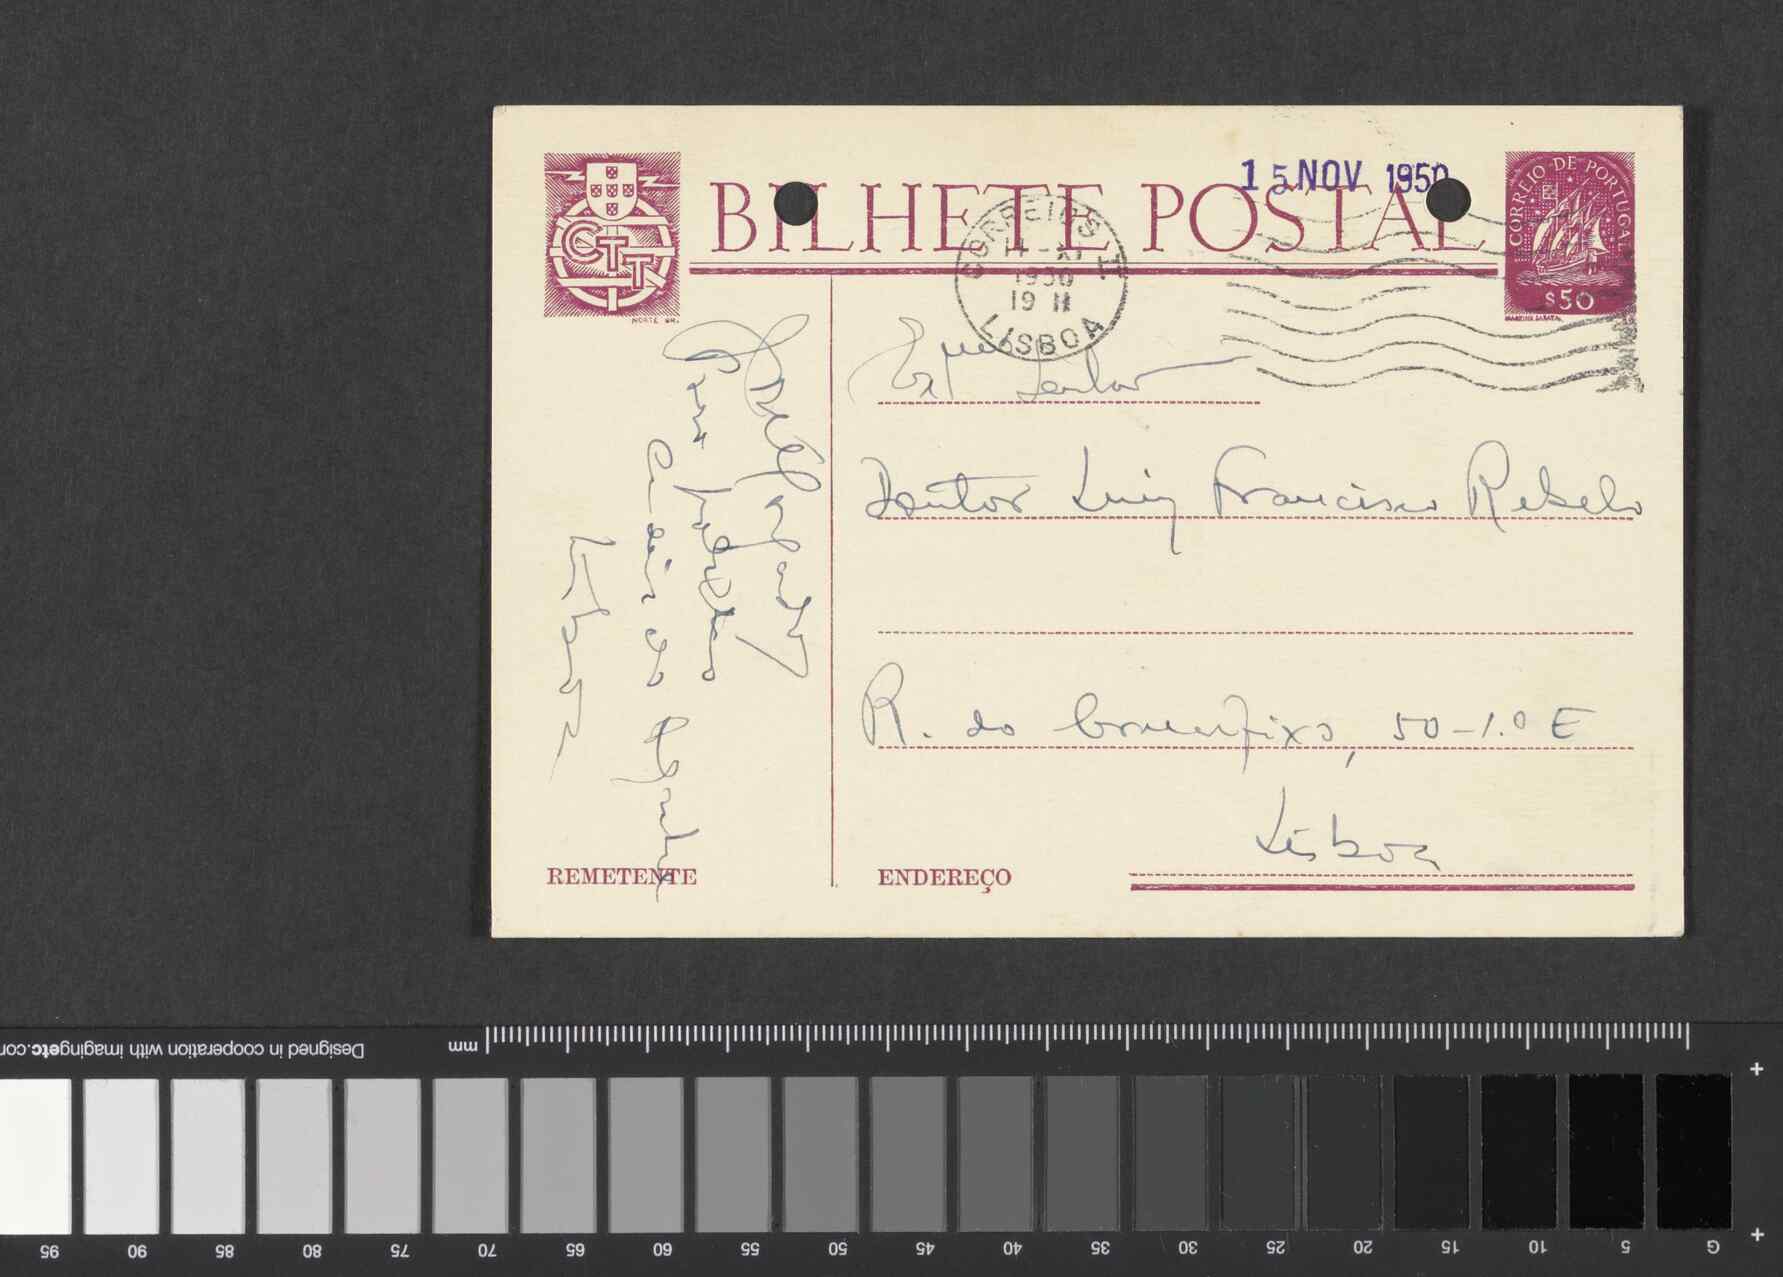 BILHETE POSTAL
15 NOV 1950
CTT
NORTE GR.
CORREIO DE PORTUGAL
$50
CORREIOS
1950
19 H
LISBOA
Exmo Senhor
Doutor Luiz Francisco Rebelo
R. do Crucifixo, 50-1.º E
Lisboa
REMETENTE
ENDEREÇO
Lisboa
Designed in cooperation with imagingetc.com
mm
95 90 85 80 75 70 65 60 55 50 45 40 35 30 25 20 15 10 5 G